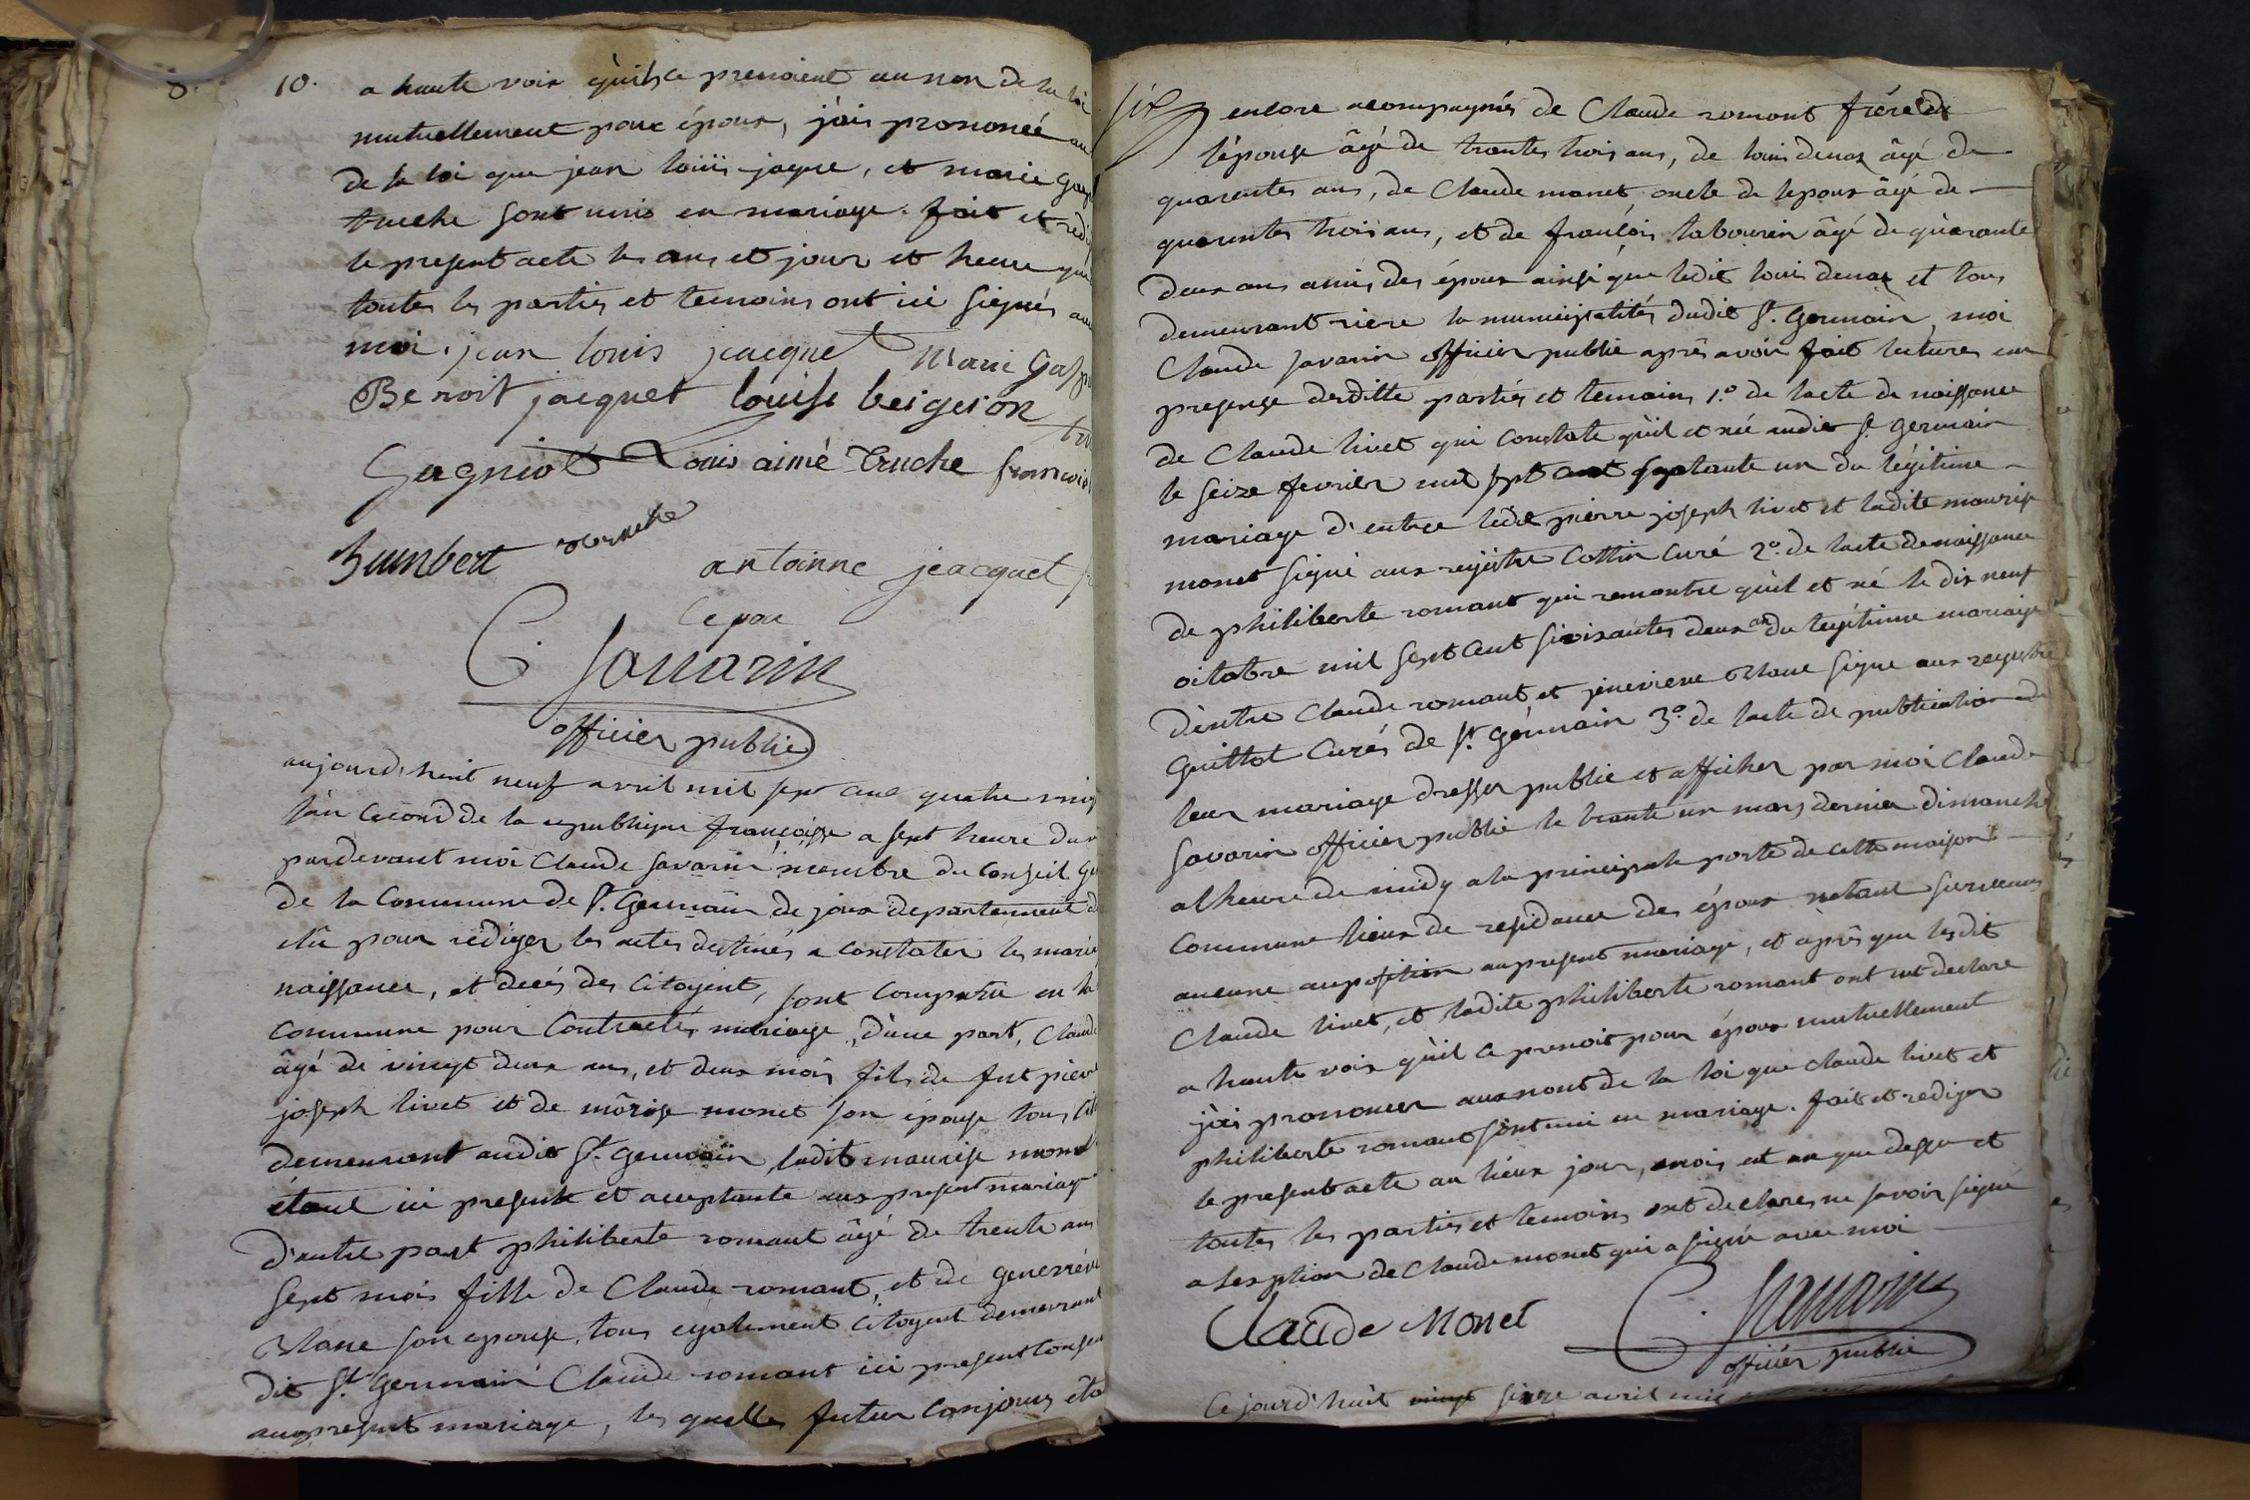 8.
10.
a haute voix qu'ils ce prenoient au non de la loi
mutuellement pour époux, j'ais prononcé au
de la loi que jean loüis jaque, et marie
truche sont unis en mariage. fait et
le present acte les ans et jour et heure que
toutes les parties et temoins ont ici signés
moi. jean louis jacquet Marie Gasp
Benoit jacquet louise bergeron
Gagniot Louis aimé Truche francois
humbert antoinne jeacquet
ce pae
C. Savarin
officier public
aujourd'huit neuf avril mil sept cent quatre
l'an cecond de la republique françoisse a sept heure du
pardevant moi Claude Savarin membre du Conseil
de la Commune de St. Germain de joux departement
élû pour rediger les actes destinés a constater les
naissance, et decés des Citoyent, sont Comparu en la
commune pour Contractés mariage, d'une part, Claude
âgé de vingt deux ans, et deux mois fils de fut pierre
joseph livet et de môrise monet son épouse tous
demeurant audit St. Germain, ladit maurise monet
étant ici presente et acceptante aux present mariage
d'autre part philiberte romant âgé de trente ans
sept mois fille de Claude romant, et de genevieve
blanc son epouse, tous egalement Citoyent demeurant
dit St. Germain Claude romant ici present
aupresent mariage, les quelles futur conjoins
encore acompagnés de Claude romont frére de
l'épouse âgé de trantes trois ans, de louis denaz âgé de
quarentes ans, de Claude monet, oncle de lepoux âgé de
quarentes trois ans, et de françois labourier âgé de quarante
deux ans amis des époux ainsi que ledit louis denaz et tous
demeurant riere la municipalités dudit St. Germain, moi
Claude Savarin officier public aprês avoir fait lectures en
presense desditte parties et temoins 1.° de lacte de naissance
de Claude livet qui constate qu'il et né audit St. Germain
le seize fevrier mil sept cent septante un du légitime
mariage d'entre ledit pierre joseph livet et ladite maurise
monet signé aux regitre Cottin curé 2.° de lacte de naissance
de philiberte romant qui remontre qu'il et né le dix neuf
octobre mil sept cent soixantes deux du legitime mariage
d'entre Claude romant et jenevieve blanc signe aux registre
Guittot Curés de St. Germain 3.° de lacte de publication de
leur mariage dresser public et afficher par moi Claude
Savarin officier public le trante un mars dernier dimanche
a lheure de midy a la principale porte de cette maison
Commune lieux de residance des époux netant survenus
aucune auposition aupresent mariage, et aprês que lesdit
Claude livet, et ladite philiberte romant ont declare
a haute voix qu'il ce prenoit pour époux mutuellement
j'ai prononcer aux nont de la loi que claude livet et
philiberte romant sont uni en mariage. fait et rediger
le present acte au lieux jour, mois et an que dessu et
toutes les parties et temoins ont declares ne savoir signé
a lesxption de Claude monet qui a signé avec moi
Claude Monet C. Savarin
officier public
Ce jourd'huit vingt avril mil